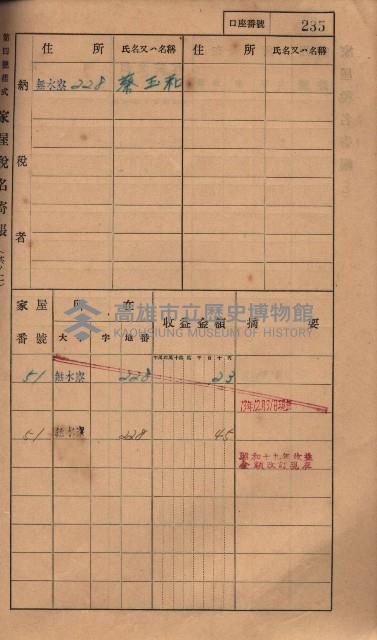 口座番號 235
第四號樣式 家屋稅名寄帳(其ノ一)
住所 氏名又ハ名稱 住所 氏名又ハ名稱
納稅者
無水寮 228 蔡玉和
家屋番號 所在 收益金額 摘要
大字 地番
51 無水寮 228 23
51 無水寮 228 45
昭和十九年改算
金額改訂
高雄市立歷史博物館
KAOHSIUNG MUSEUM OF HISTORY